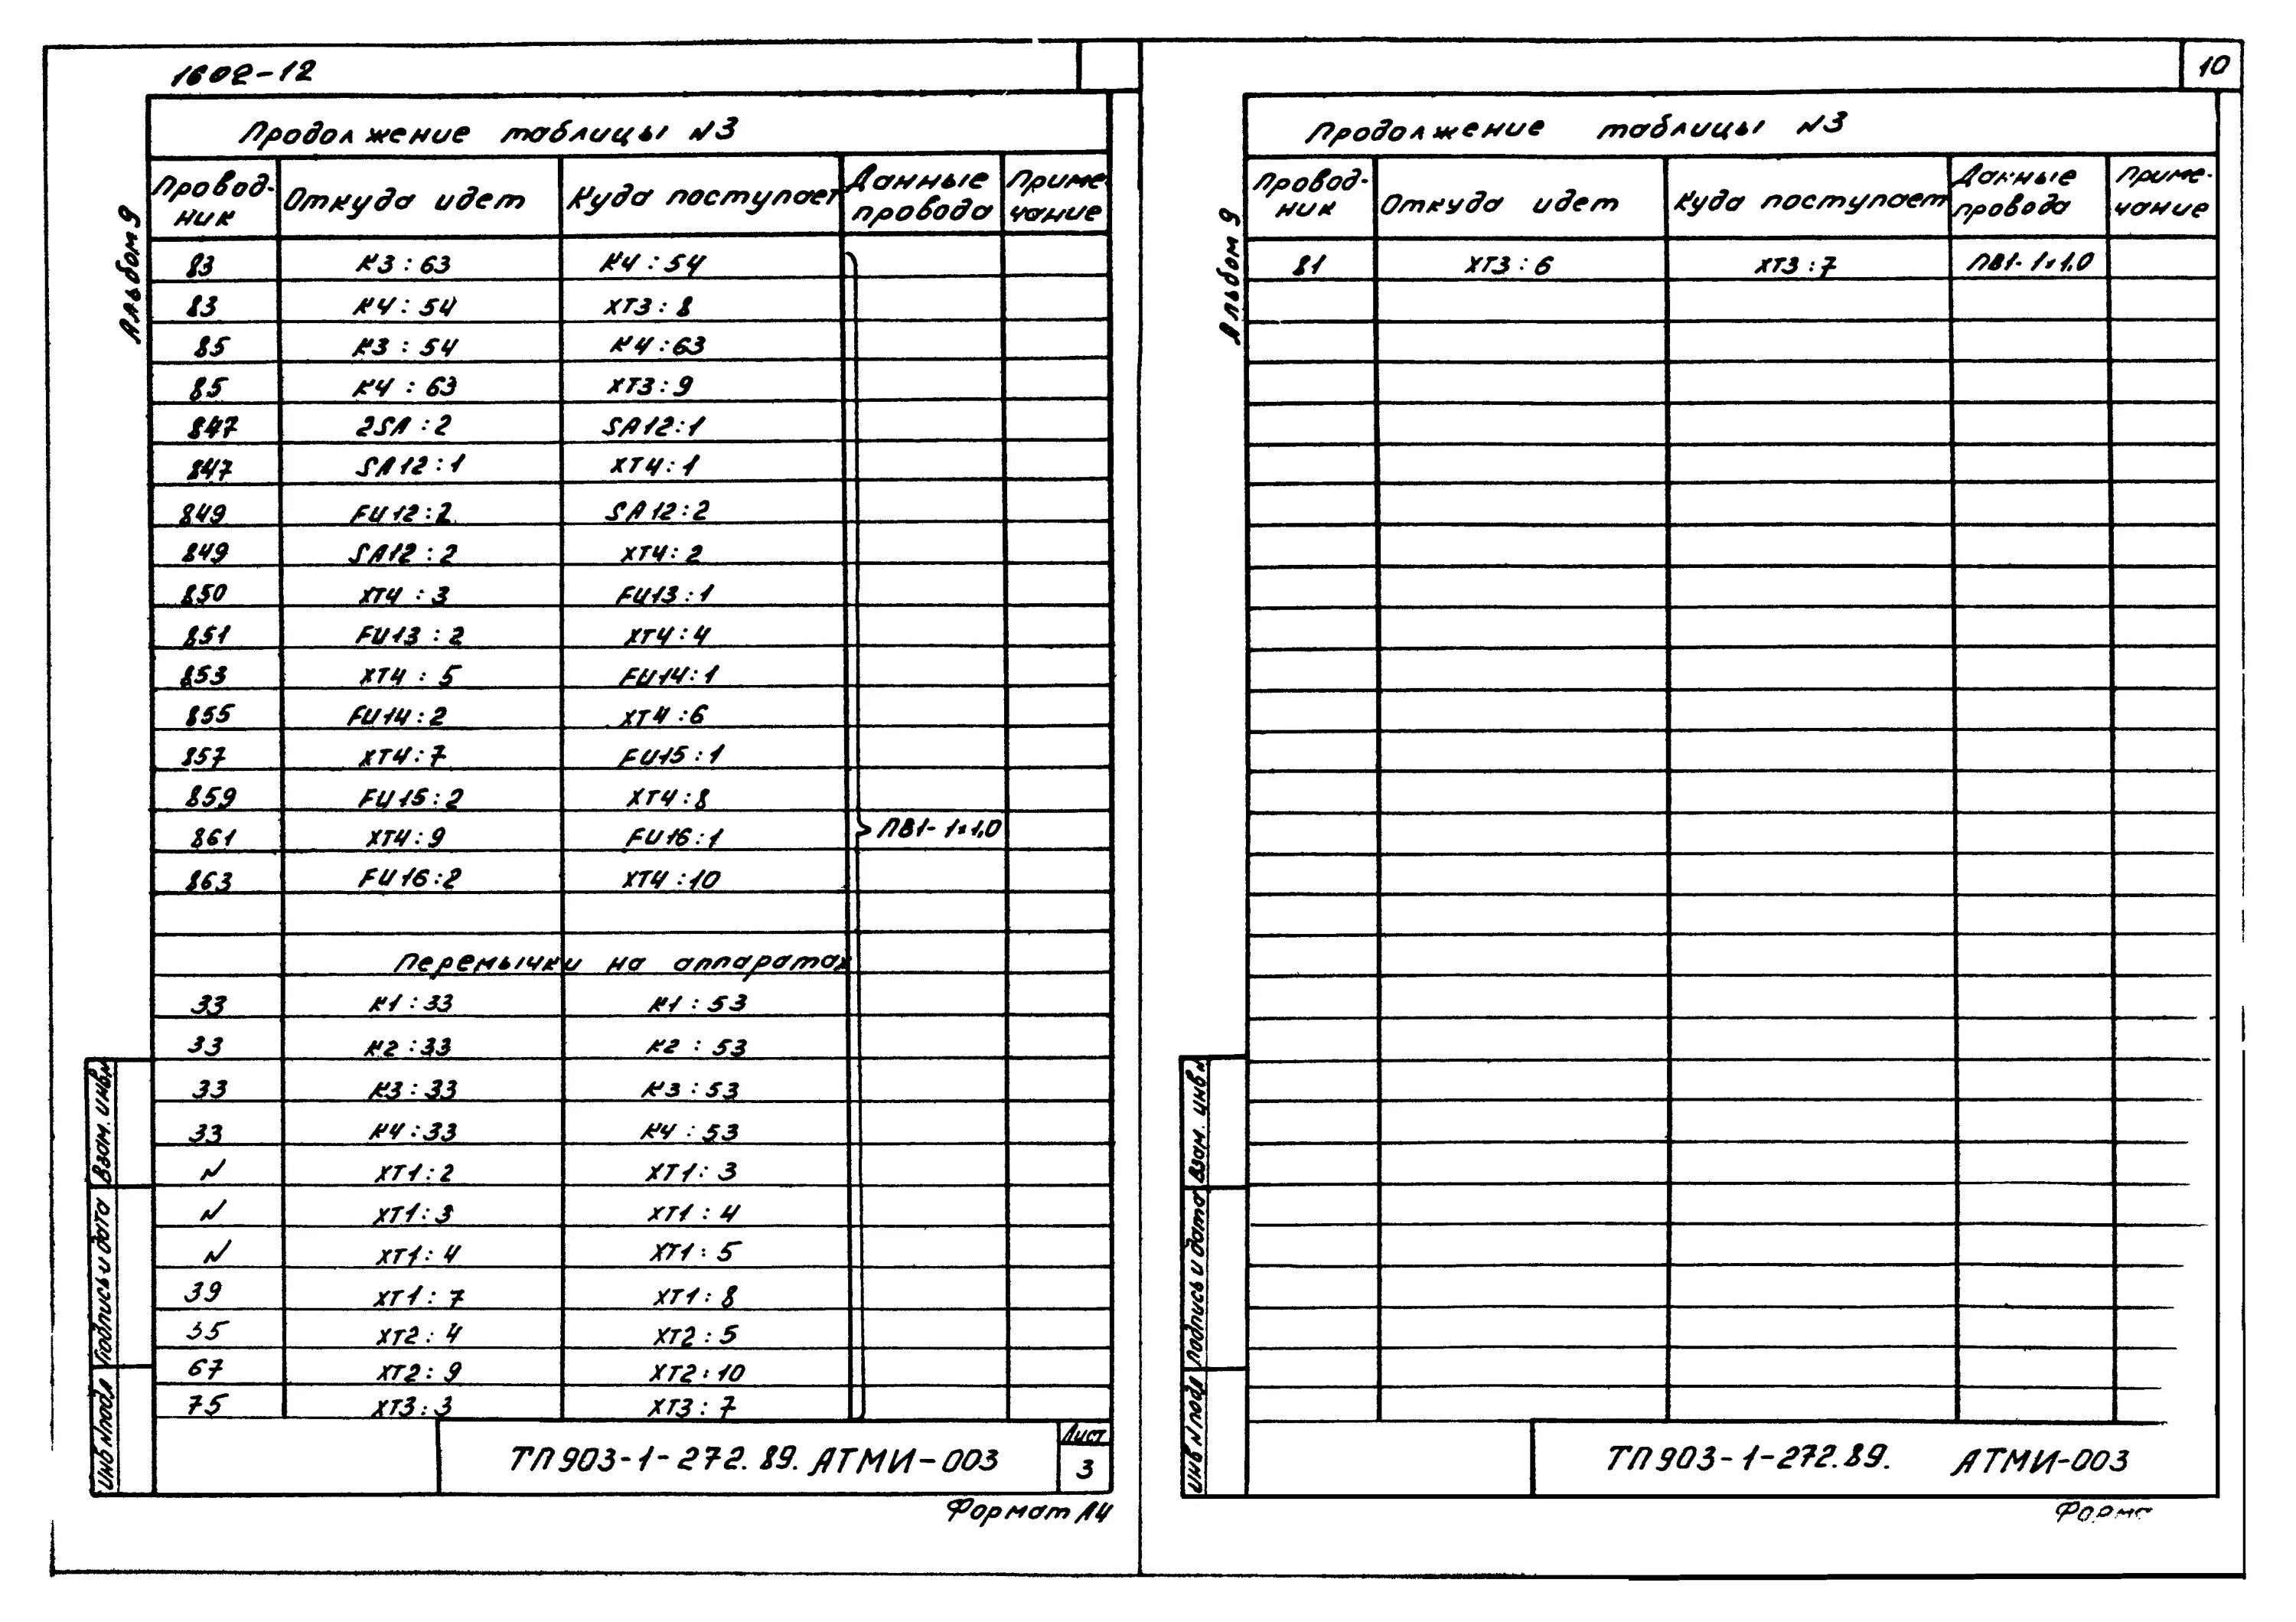 1602-12
Альбом 9
Продолжение таблицы N3
Провод-ник Откуда идет Куда поступает Данные провода Приме-чание
83 К3:63 К4:54
83 К4:54 ХТ3:8
85 К3:54 К4:63
85 К4:63 ХТ3:9
847 2SA:2 SA12:1
847 SA12:1 ХТ4:1
849 FU12:2 SA12:2
849 SA12:2 ХТ4:2
850 ХТ4:3 FU13:1
851 FU13:2 ХТ4:4
853 ХТ4:5 FU14:1
855 FU14:2 ХТ4:6
857 ХТ4:7 FU15:1
859 FU15:2 ХТ4:8
861 ХТ4:9 FU16:1 ПВ1-1×1,0
863 FU16:2 ХТ4:10
Перемычки на аппаратах
33 К1:33 К1:53
33 К2:33 К2:53
33 К3:33 К3:53
33 К4:33 К4:53
N ХТ1:2 ХТ1:3
N ХТ1:3 ХТ1:4
N ХТ1:4 ХТ1:5
39 ХТ1:7 ХТ1:8
55 ХТ2:4 ХТ2:5
67 ХТ2:9 ХТ2:10
75 ХТ3:3 ХТ3:7
Взам. инв N
Подпись и дата
Инв N подл
ТП903-1-272.89. АТМИ-003
Лист
3
Формат А4
10
Альбом 9
Продолжение таблицы N3
Провод-ник Откуда идет Куда поступает Данные провода Приме-чание
81 ХТ3:6 ХТ3:7 ПВ1-1×1,0
Взам. инв N
Подпись и дата
Инв N подл
ТП903-1-272.89. АТМИ-003